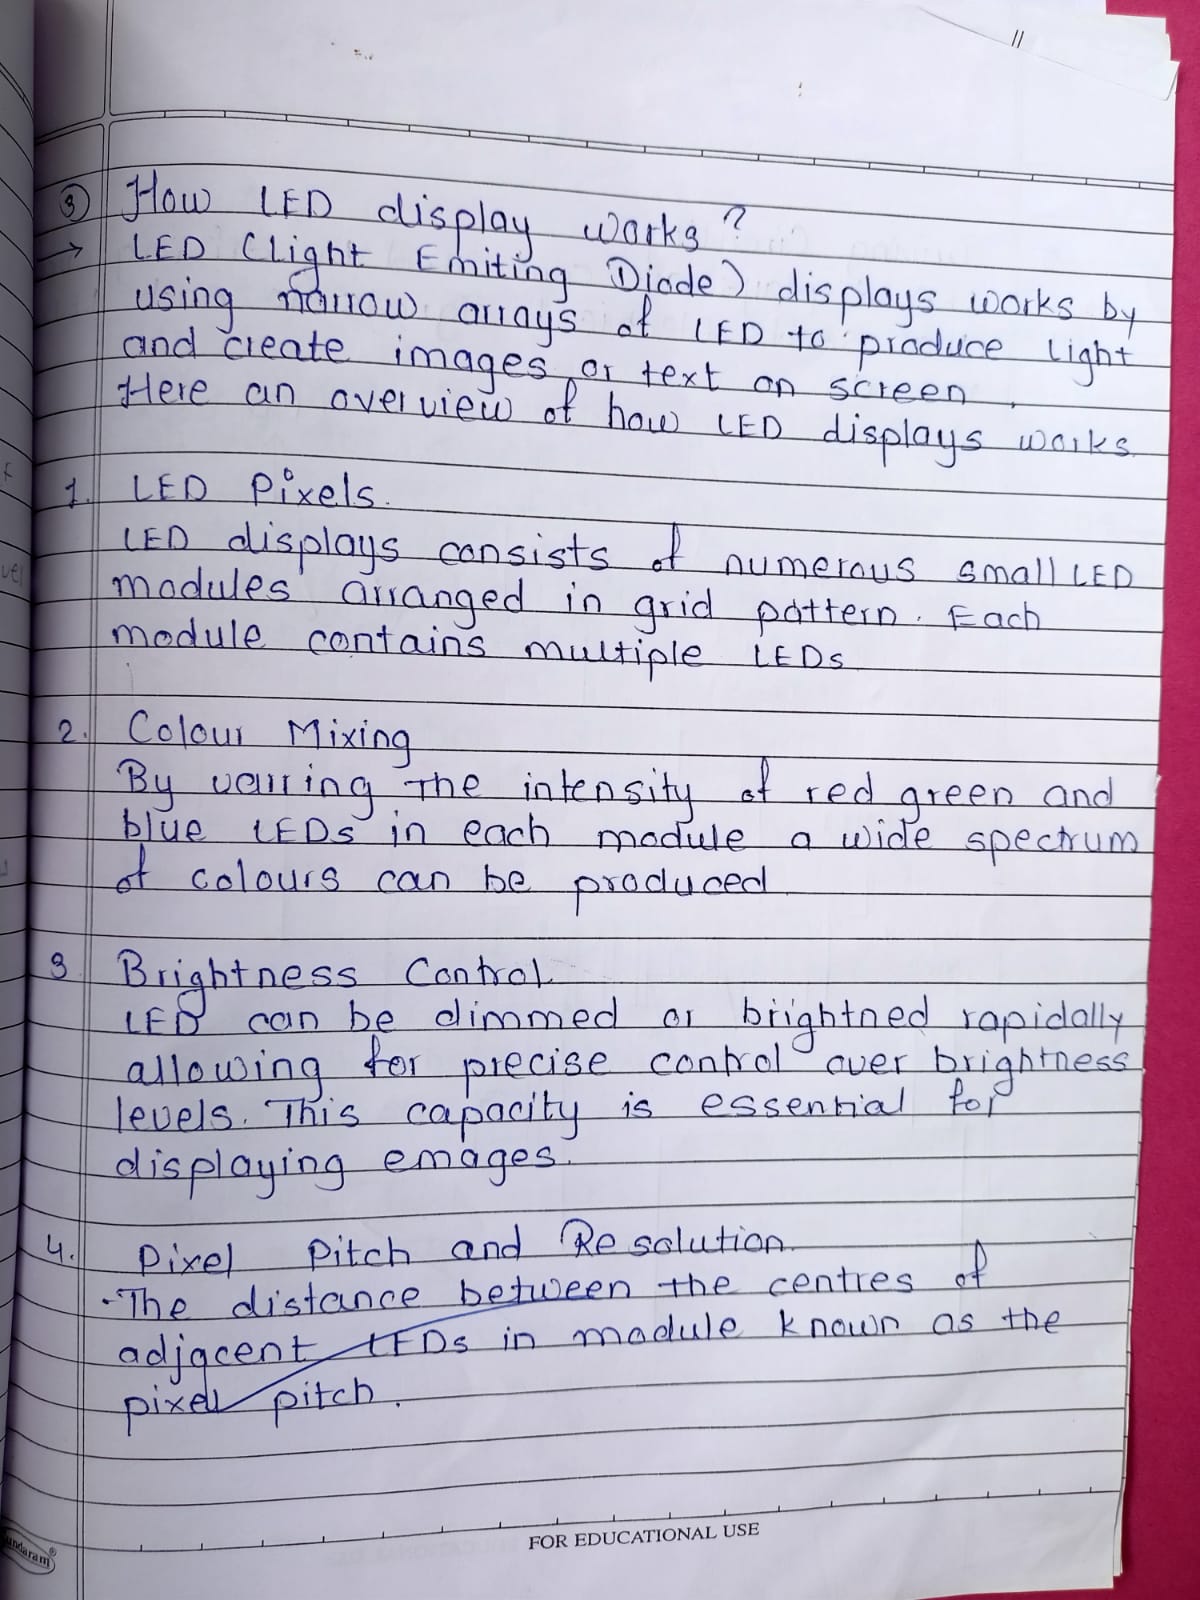 ③ How LED display works?
→ LED (Light Emiting Diode) displays works by
using narrow arrays of LED to produce light
and create images or text on screen.
Here an overview of how LED displays works.
1. LED Pixels.
LED displays consists of numerous small LED
modules arranged in grid pattern. Each
module contains multiple LEDs
2. Colour Mixing
By varring the intensity of red green and
blue LEDs in each module a wide spectrum
of colours can be produced
3 Brightness Control
LED can be dimmed or brightned rapidally
allowing for precise control over brightness
levels. This capacity is essential for
displaying emages.
4. Pixel Pitch and Resolution.
·The distance between the centres of
adjacent LEDs in module known as the
pixel pitch.
FOR EDUCATIONAL USE